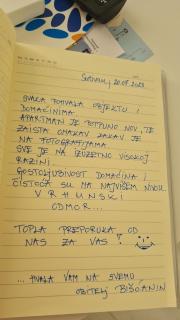 20.07.2023
SVAKA POHVALA OBJEKTU I
DOMAĆINIMA.
APARTMAN JE POTPUNO NOV, TE
ZAISTA ONAKAV KAKAV JE
NA FOTOGRAFIJAMA.
SVE JE NA IZUZETNO VISOKOJ
RAZINI.
GOSTOLJUBIVOST DOMAĆINA I
ČISTOĆA SU NA NAJVIŠEM NIVOU.
VRHUNSKI
ODMOR...
TOPLA PREPORUKA OD
NAS ZA VAS!
... HVALA VAM NA SVEMU
OBITELJ BIŠĆANIN